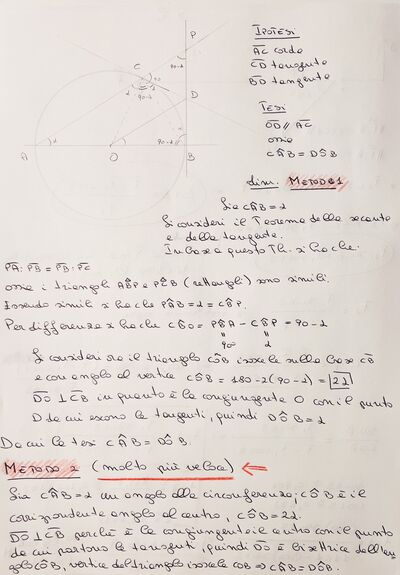 IPOTESI
AC corda
CD tangente
BD tangente
TESI
OD // AC
ossia
CÂB = DÔB
dim. METODO 1
Sia CÂB = α
Si consideri il Teorema della secante
e della tangente.
In base a questo Th. si ha che:
PA : PB = PB : PC
ossia i triangoli ABP e PCB (rettangoli) sono simili.
Essendo simili si ha che PÂB = α = CB̂P.
Per differenza si ha che CB̂O = PB̂A - CB̂P = 90-α
90 α
Si consideri ora il triangolo CÔB isoscele sulla base CB
e con angolo al vertice CÔB = 180-2(90-α) = 2α
DO ⊥ CB in quanto è la congiungente O con il punto
D da cui escono le tangenti, quindi DÔB = α
Da cui la tesi CÂB = DÔB.
METODO 2 (molto più veloce) ←
Sia CÂB = α un angolo alla circonferenza; CÔB è il
corrispondente angolo al centro, CÔB = 2α.
DO ⊥ CB perché è la congiungente il centro con il punto
da cui partono le tangenti, quindi DO è bisettrice dell'an
golo CÔB, vertice del triangolo isoscele COB ⇒ CÂB = DÔB.
P
90-α
C
90
α
D
90-α
A
α
O
90-α
B